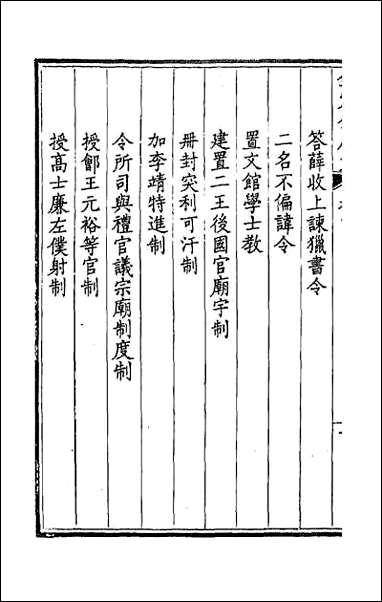 答薛收上諫獵書令
二名不偏諱令
置文館學士教
建置二王後國官廟宇制
冊封突利可汗制
加李靖特進制
令所司與禮官議宗廟制度制
授鄶王元裕等官制
授高士廉左僕射制